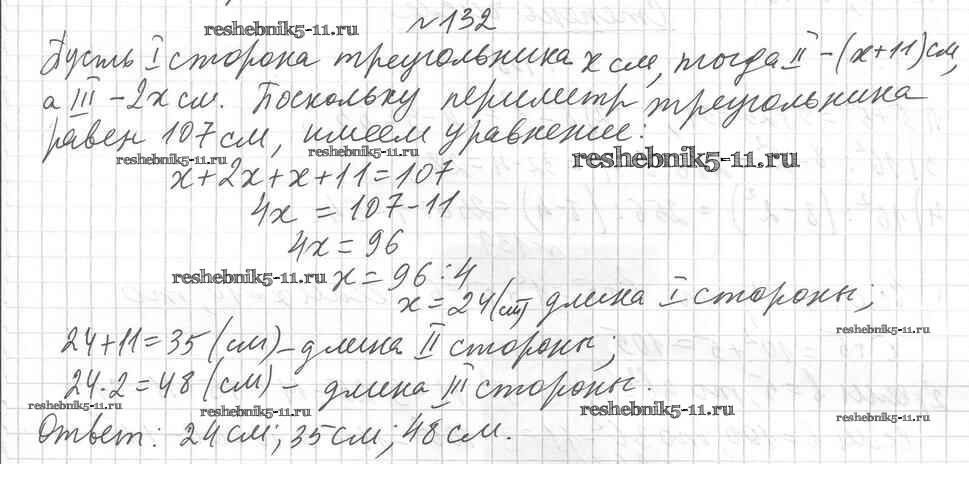 №132
reshebnik5-11.ru
Пусть I сторона треугольника x см, тогда II - (x+11) см,
а III - 2x см. Поскольку периметр треугольника
равен 107 см, имеем уравнение:
reshebnik5-11.ru
reshebnik5-11.ru
reshebnik5-11.ru
x+2x+x+11=107
4x = 107-11
4x = 96
reshebnik5-11.ru
x = 96 : 4
x = 24 (см) длина I стороны;
reshebnik5-11.ru
24+11=35 (см) - длина II стороны;
24·2=48 (см) - длина III стороны.
reshebnik5-11.ru
reshebnik5-11.ru
reshebnik5-11.ru
reshebnik5-11.ru
Ответ: 24 см; 35 см; 48 см.